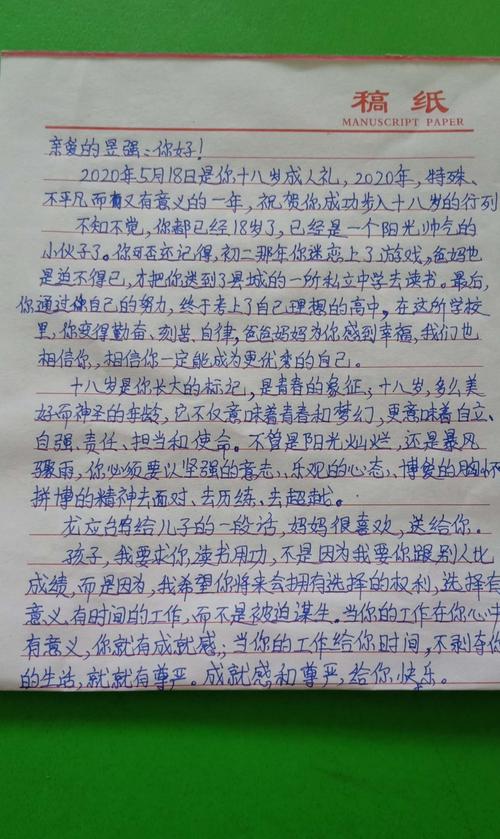 稿纸
MANUSCRIPT PAPER
亲爱的昱强:你好!
2020年5月18日是你十八岁成人礼,2020年,特殊、
不平凡而又有意义的一年,祝贺你成功步入十八岁的行列
不知不觉,你都已经18岁了,已经是一个阳光,帅气的
小伙子了。你可否还记得,初二那年你迷恋上了游戏,爸妈也
是迫不得已,才把你送到了县城的一所私立中学去读书。最后,
你通过你自己的努力,终于考上了自己理想的高中,在这所学校
里,你变得勤奋、刻苦、自律,爸爸妈妈为你感到幸福,我们也
相信你,相信你一定能成为更优秀的自己。
十八岁是你长大的标记,是青春的象征,十八岁,多么美
好而神圣的年龄,它不仅意味着青春和梦幻,更意味着自立、
自强、责任、担当和使命。不管是阳光灿烂,还是暴风
骤雨,你必须要以坚强的意志、乐观的心态、博爱的胸怀
拼博的精神去面对、去历练、去超越。
龙应台写给儿子的一段话,妈妈很喜欢,送给你。
孩子,我要求你读书用功,不是因为我要你跟别人比
成绩,而是因为,我希望你将来会拥有选择的权利,选择有
意义、有时间的工作,而不是被迫谋生。当你的工作在你心中
有意义,你就有成就感,当你的工作给你时间,不剥夺你
的生活,就就有尊严。成就感和尊严,给你快乐。